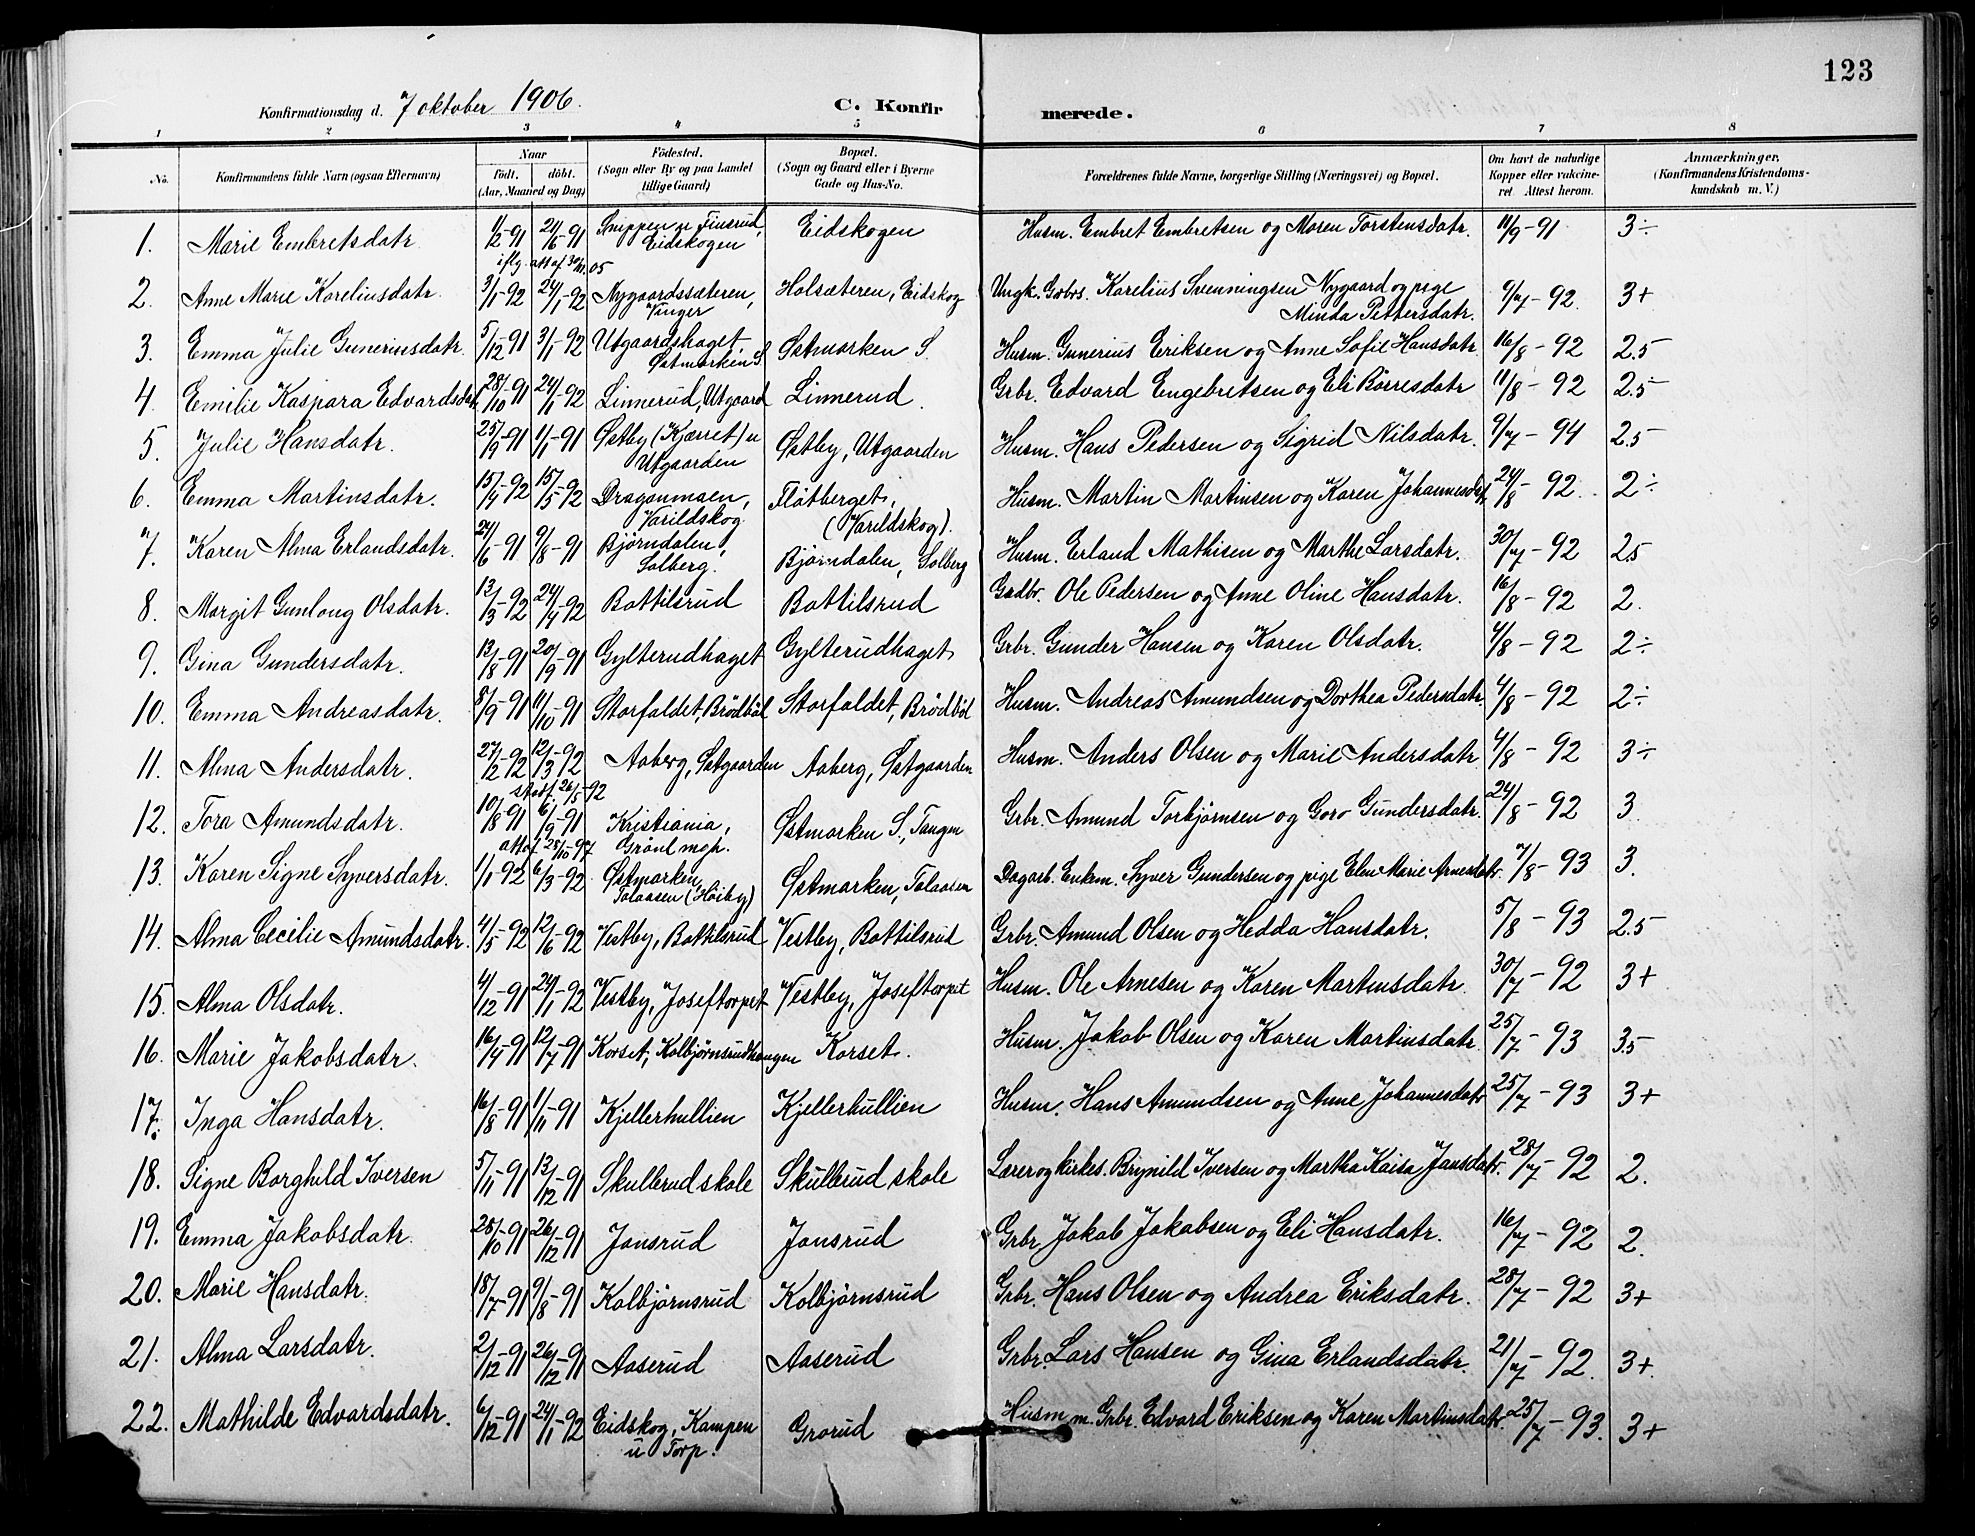 123
Konfirmationsdag d. 7 oktober 1906. C. Konfirmerede.
1 2 3 4 5 6 7 8
No. Konfirmandens fulde Navn (ogsaa Efternavn) Naar født. døbt. (Aar, Maaned og Dag) Fødested. (Sogn eller By og paa Landet tillige Gaard) Bopæl. (Sogn og Gaard eller i Byerne Gade og Hus-No. Forældrenes fulde Navne, borgerlige Stilling (Næringsvei) og Bopæl. Om havt de naturlige Kopper eller vakcineret. Attest herom. Anmærkninger. (Konfirmandens Kristendomskundskab m. V.)
1. Marie Embretsdatr. 1/2-91 21/6-91 Snippen u Finsrud, Eidskogen Eidskogen Husm. Embret Embretsen og Maren Torstensdatr. 11/9-91 3÷
iflg. att af 30/11.05
2. Anne Marie Koreliusdatr. 3/1-92 24/1-92 Nygaardssæteren, Vinger Holsæteren, Eidskog Ungk. Gbrs. Korelius Svenningsen Nygaard og pige Minda Pettersdatr. 9/7-92. 3+
3. Emma Julie Guneriusdatr. 5/12-91 3/1-92 Utgaardshaget Østmarken S. Østmarken S. Husm. Gunerius Eriksen og Anne Sofie Hansdatr. 16/8-92 2.5
4. Emilie Kaspara Edvardsdatr. 28/10-91 24/1-92 Linnerud, Utgaard Linnerud. Grbr. Edvard Engebretsen og Eli Børresdatr 11/8-92 2.5
5. Julie Hansdatr. 25/9-91 1/11-91 Østby (Kjærret) u Utgaarden Østby, Utgaarden Husm. Hans Pedersen og Sigrid Nilsdatr. 9/7-94 2.5
6. Emma Martinsdatr. 15/4-92 15/5-92 Dragonmoen, Varildskog Fløtberget, (Varildskog). Husm. Martin Martinsen og Karen Johannesdatr. 24/8-92. 2÷
7. Karen Alma Erlandsdatr. 24/6-91 9/8-91 Bjørndalen, Solberg. Bjørndalen, Solberg Husm. Erland Mathisen og Marthe Larsdatr. 30/7-92 2.5
8. Margit Gunlaug Olsdatr. 13/3-92 24/4-92 Bottilsrud Bottilsrud Grdbr. Ole Pedersen og Anne Oline Hansdatr. 16/8-92 2.
9. Gina Gundersdatr. 13/8-91 20/9-91 Gylterudhaget Gylterudhaget Grbr. Gunder Hansen og Karen Olsdatr. 4/8-92 2÷
10. Emma Andreasdatr. 8/9-91 11/10-91 Storfaldet, Brødbøl Storfaldet, Brødbøl Husm. Andreas Amundsen og Dorthea Pedersdatr. 4/8-92 2÷
11. Alma Andersdatr. 27/12-92 12/3-92 Aaberg, Østgaarden Aaberg, Østgaarden Husm. Anders Olsen og Marie Andersdatr. 4/8-92 3÷
26/5-92
12. Tora Amundsdatr. 10/8-91 6/9-91 Kristiania, Grønl. mgh. Østmarken S., Tangen Grbr. Amund Torbjørnsen og Goro Gundersdatr. 24/8-92 3.
att af 28/10-97
13. Karen Signe Syversdatr. 1/1-92 6/3-92 Østmarken Tolaasen (Høiby) Østmarken, Tolaasen Dagarb. Enkem. Syver Gundersen og pige Elen Marie Arnesdatr. 7/8-93 3.
14. Alma Cecilie Amundsdatr. 4/5-92 12/6-92 Vestby, Bottilsrud Vestby, Bottilsrud Grbr. Amund Olsen og Hedda Hansdatr. 5/8-93 2.5
15. Alma Olsdatr. 4/12-91 24/1-92 Vestby, Joseftorpet Vestby, Joseftorpet Husm. Ole Arnesen og Karen Martinsdatr. 30/7-92 3+
16. Marie Jakobsdatr. 16/4-91 12/7-91 Korset, Kolbjørnsrudhaugen Korset. Husm. Jakob Olsen og Karen Martinsdatr. 25/7-93 3.5
17. Inga Hansdatr. 16/8-91 1/11-91 Kjellerhullien Kjellerhullien Husm. Hans Amundsen og Anne Johannesdatr 25/7-93 3+
18. Signe Borghild Iversen 5/11-91 13/12-91 Skullerud skole Skullerud skole Lærer og kirkes. Brynild Iversen og Martha Kaisa Jansdatr. 28/7-92 2.
19. Emma Jakobsdatr. 28/10-91 26/12-91 Jonsrud Jonsrud Grbr Jakob Jakobsen og Eli Hansdatr. 16/7-92 2.
20. Marie Hansdatr. 18/7-91 9/8-91 Kolbjørnsrud Kolbjørnsrud Grbr. Hans Olsen og Andrea Eriksdatr. 28/7-92 3+
21. Alma Larsdatr. 2/12-91 26/12-91 Aaserud Aaserud Grbr. Lars Hansen og Gina Erlandsdatr. 21/7-92. 3+.
22. Mathilde Edvardsdatr. 6/12-91 24/1-92 Eidskog, Kampen u Torp. Grorud Husm m. Grbr. Edvard Eriksen og Karen Martinsdatr. 25/7-93. 3+